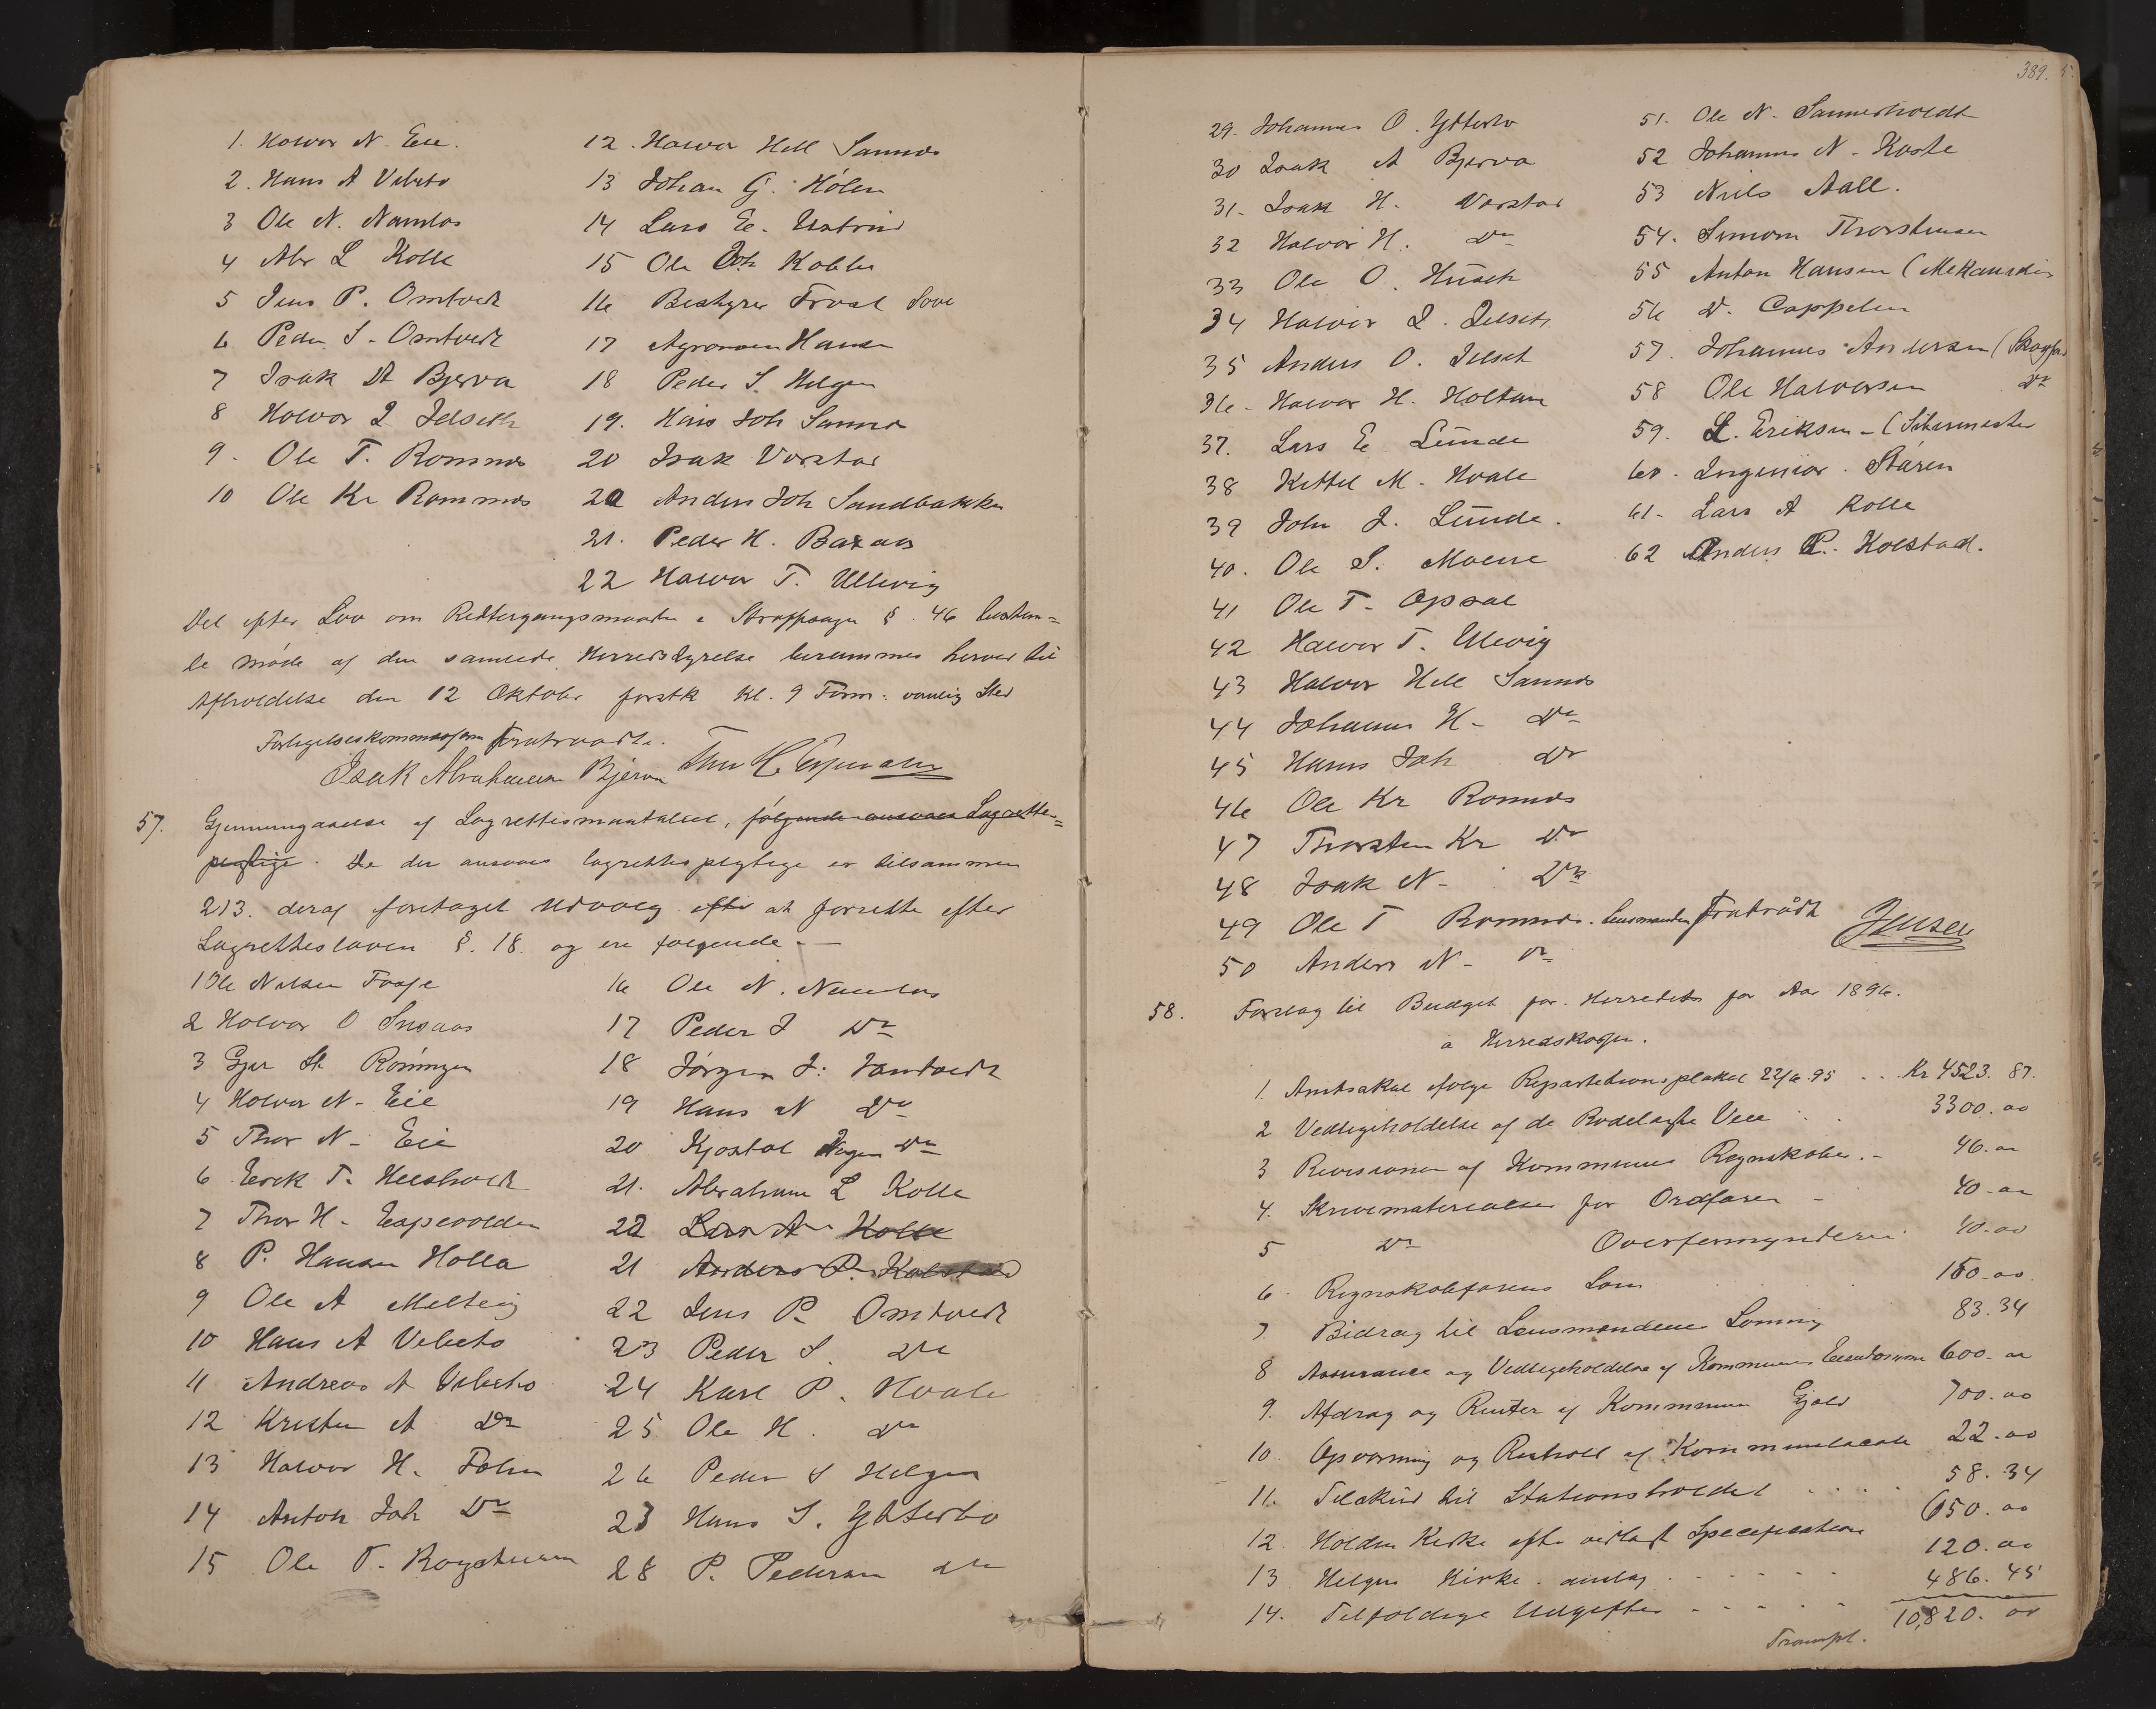 1. Halvor N. Eie.
2. Hans A Vibeto
3 Ole N. Namlos
4 Abr L Kolle
5 Jens P. Omtvedt
6 Peder S. Omtvedt
7 Isak A Bjerva
8 Halvor I Jelseth
9. Ole T. Romnes
10 Ole Kr Romnes
12. Halvor Hell Sannes
13 Johan G. Holen
14 Lars E.
15 Ole Joh Kolbu
16 Bestyrer Frost Sove
17 Agronom Hansen
18 Peder S. Helgen
19. Hans Joh Sannes
20 Isak Vorstad
20 Anders Joh Sandbakken
21. Peder H. Baraas
22 Halvor T. Ullevig
Det efter Lov om Rettergangsmaaden i Straffesager § 46 bestem=
te møde af den samlede Herredsstyrelse berammes herved til
Afholdelse den 12 Oktober førstk kl. 9 Form. vanlig Sted
Forligelseskommissæren fratraadte.
Isak Abrahamsen Bjerva
57. Gjennemgaaelse af Lagrettesmantallet, følgende ansaaes Lagrettes=
pligtige. De der ansaaes lagrettespligtige er tilsammen
213. deraf foretaget Udvalg efter at forrette efter
Lagretteloven §. 18. og ere følgende. —
1 Ole Nilsen Faafe
2 Halvor O Snesaas
3 Gjer St Roninge
4 Halvor N. Eie
5 Thor N. Eie
6 Erik T. Heisholdt
7 Thor H. Eapevolden
8 P. Hansen Holla
9 Ole A Melteig
10 Hans A Vibeto
11 Andreas A Vibeto
12 Kristen A Do
13 Halvor H. Folm
14 Anton Joh Do
15 Ole T.
16 Ole N. Namlos
17 Peder I Do
18 Jørgen J. Tamtvedt
19 Hans N Do
20 Kjøstol Do
21. Abraham L Kolle
22 Lars A Kolle
21 Anders P. Kolstad
22 Jens P. Omtvedt
23 Peder S. Do
24 Karl P. Hvale
25 Ole H. Do
26 Peder S Helgen
27 Hans S. Ytterbo
28 P. Pedersen Do
389.
29. Johannes O. Ytterbo
30 Isak A Bjerva
31. Isak H. Vorstad
32 Halvor H. Do
33 Ole O. Husets
34 Halvor I. Jelseth
35 Anders O. Jelseth
36. Halvor H. Holtan
37. Lars E Lunde
38 Kittel M. Hvale
39 John J. Lunde.
40. Ole S. Moene
41 Ole T. Opsal
42 Halvor T. Ulevig
43 Halvor Hell Sannes
44 Johannes H. Do
45 Hans Joh Do
46 Ole Kr Romnes
47 Thorsten Kr Do
48 Isak N. Do
49 Ole T Romnes. Lensmanden fratrådt Jensen
50 Anders N. Do
51. Ole N. Sannerholdt
52 Johannes N. Kaste
53 Niels Aall.
54. Simon Thorstensen
55 Anton Hansen (Mekanicus
56 D. Cappelen
57. Johannes Andersen (Skogfor
58 Ole Halvorsen Do
59. L. Eriksen (Stiermester
60. Ingeniør Støren
61. Lars A Kolle
62 Anders P. Kolstad.
58. Forslag til Budget for Herredets for Aar 1896.
a Herredskassen.
1. Amtsskat ifølge Repartitionsplakat 22/6 95 . . Kr 4523. 87.
2 Vedligeholdelse af de Rodelagte Veie 3300. 00
3 Revisionen af Kommunens Regnskaber. 46. 00
4. Skrivematerialer for Ordføren 40. 00
5 Do Overformynderi 40. 00
6. Regnskabsførerens Løn 150. 00
7. Bidrag til Lensmandens Lønning 83. 34
8 Assurance og Vedligeholdelse af Kommunens Eiendomme 600. 00
9. Afdrag og Renter af Kommunens Gjæld 700. 00
10. Opvarming og Renhold af Kommunelocale 22. 00
11. Tilskud til Stationsholdet 58. 34
12 Holden Kirke efter vedlagt Specification 650. 00
13 Helgen Kirke anslag 120. 00
14. Tilfældige Udgifter 486. 45
10,820. 00
Transpt.